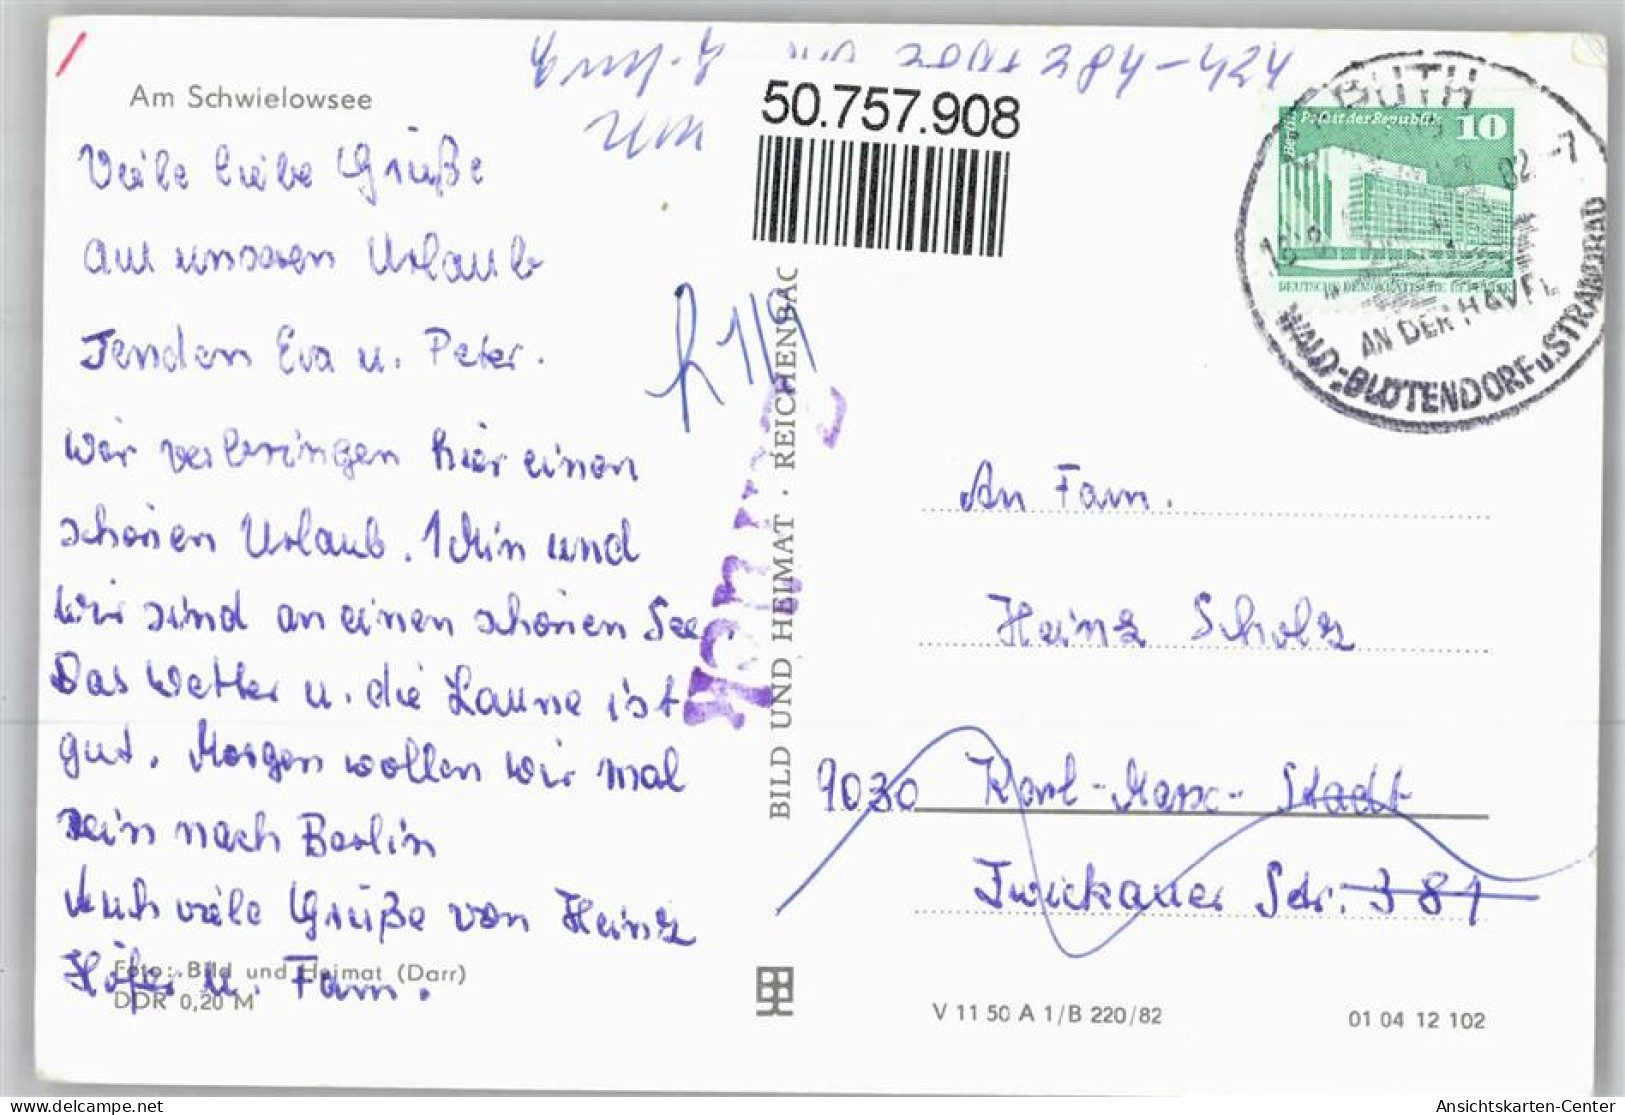 Am Schwielowsee
Viele liebe Grüße
aus unseren Urlaub
senden Eva u. Peter.
Wir verbringen hier einen
schönen Urlaub.
wir sind an einen schönen See.
Das Wetter u. die Laune ist
gut. Morgen wollen wir mal
rein nach Berlin
Auch viele Grüße von Heinz
Höfer u. Fam.
Foto: Bild und Heimat (Darr)
DDR 0,20 M
284-424
50.757.908
BILD UND HEIMAT · REICHENBAC
10
Palast der Republik
DEUTSCHE DEMOKRATISCHE REPUBLIK
AN DER HAVEL
WALD-BLÜTENDORF u. STRANDBAD
An Fam.
Heinz Scholz
9030 Karl-Marx-Stadt
Zwickauer Str. 381
V 11 50 A 1/B 220/82
01 04 12 102
Ansichtskarten-Center